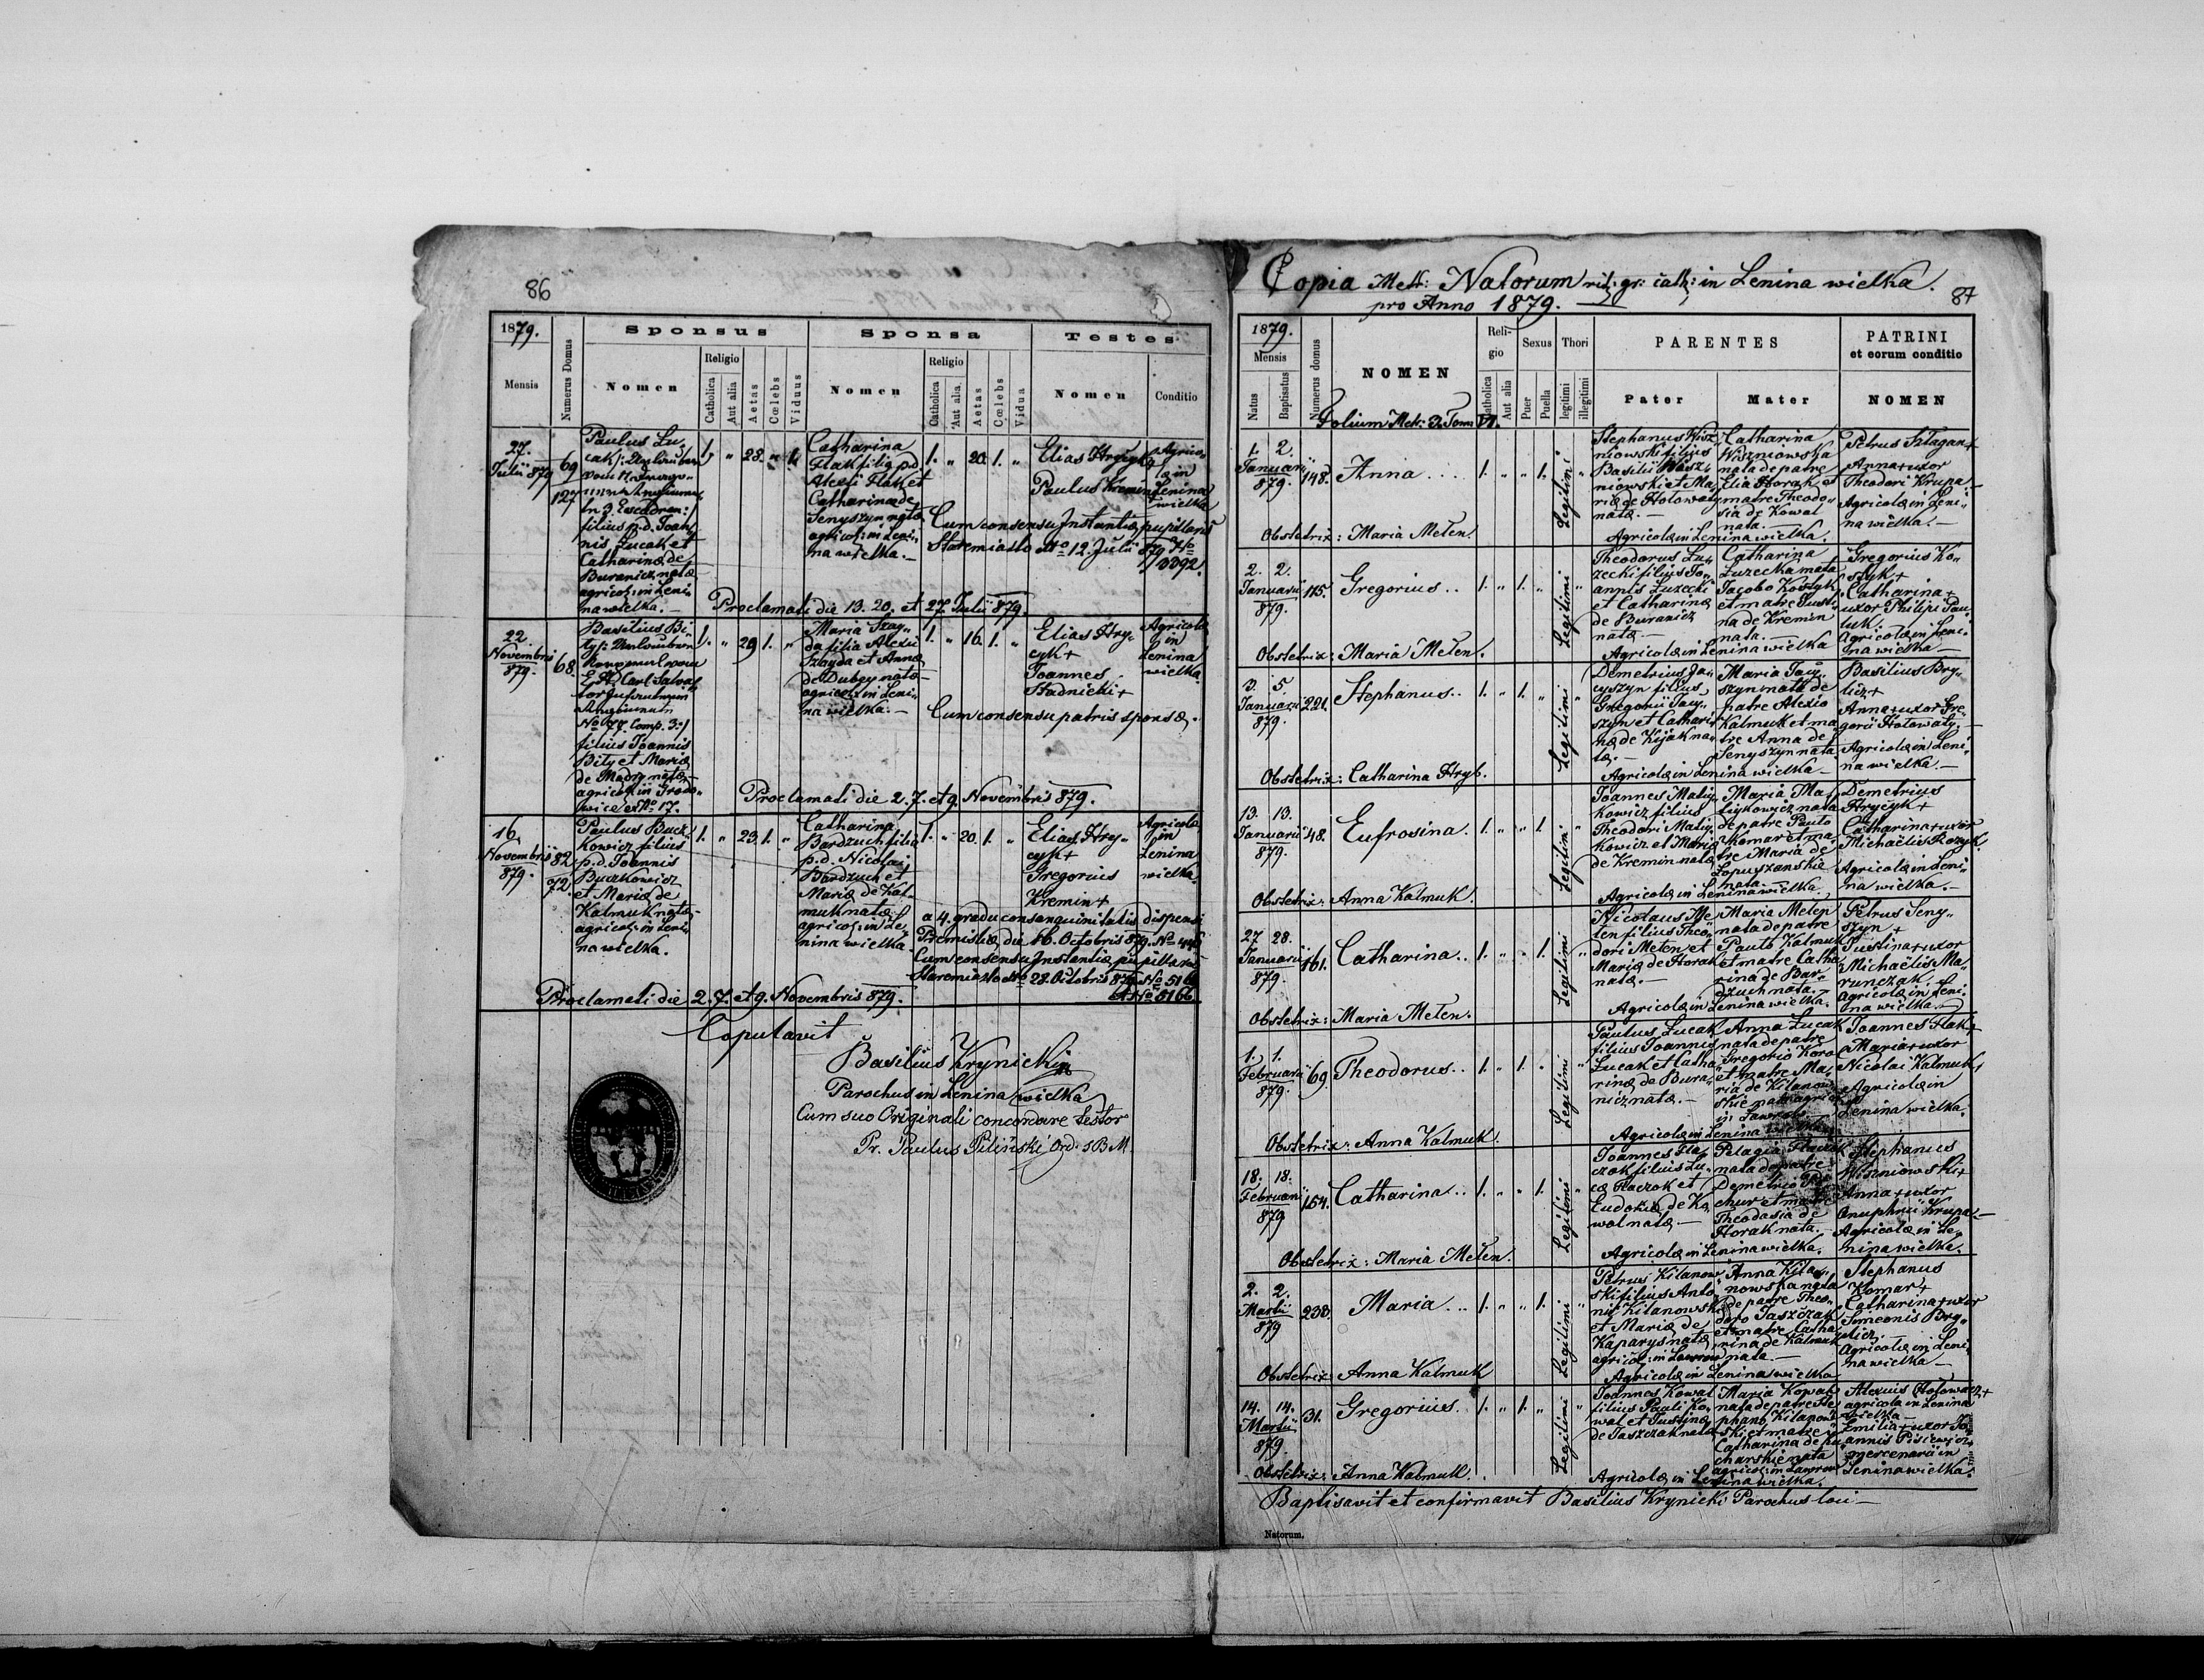 86
1879.
Mensis
Numerus Domus
Sponsus
Nomen
Religio
Catholica
Aut alia
Aetas
Cœlebs
Viduus
Sponsa
Nomen
Religio
Catholica
Aut alia.
Aetas
Cœlebs
Vidua
Testes
Nomen
Conditio
27.
Julii 879
69
127
Paulus Lu„
cak
in 3. Escadron:
filius p.d. Joan„
nis Lucak et
Catharinæ de
Buranicz natæ
agricol: in Leni„
na wielka.—
1. „ 28. „ 1.
Catharina
Flak filia p.d.
Alexii Flak et
Catharinæ de
Senyszyn natæ
agricol: in Leni„
na wielka.—
1. „ 20. 1. „
Elias Hrycyk+
Paulus Kremin+
Agricolæ
in
Lenina
wielka
Cum consensu Instantiæ pupillaris
Staremiasto dtto 12. Julii 879 No
3392.
Proclamati die 13. 20. et 27. Julii 879.
22.
Novembris
879.
68.
Basilius Bi„
ty
No 77. Comp. 3./
filius Joannis
Bity et Mariæ
de Madry natæ—
agricol: in Grodo„
wice ex No 17.
1. „ 29 1. „
Maria Szay„
da filia Alexii
Szayda et Annæ
de Dubey natæ—
agricol: in Leni„
na wielka.—
1. „ 16. 1. „
Elias Hry„
cyk+
Joannes
Stadnicki+
Agricolæ
in
Lenina
wielka
Cum consensu patris sponsæ.
Proclamati die 2. 7. et 9. Novembris 879.
16.
Novembris
879.
82
72.
Paulus Bucz„
kowicz filius
p.d. Joannis
Buczkowicz
et Mariæ de
Kalmuk natæ—
agricol: in Leni„
na wielka.
1. „ 23. 1. „
Catharina
Bardzuch filia
p.d. Nicolai
Bardzuch et
Mariæ de Kal„
muk natæ
agricol: in Le„
nina wielka.
1. „ 20. 1. „
Elias Hry„
cyk+
Gregorius
Kremin+
Agricolæ
in
Lenina
wielka
a 4. gradu consanguinitatis dispensi
Premisliæ die 16. Octobris 879. No
Cum consensu Instantiæ pupillaris
Staremiasto dtto 28. Octobris 879. No
et No 5166
Proclamati die 2. 7. et 9. Novembris 879.
Copulavit
Basilius Krynicki
Parochus in Lenina wielka
Cum suo Originali concordare testor
Pr. Paulus Piliński Ord. S B M.
Copia Metr: Natorum rit: gr: cath: in Lenina wielka.
pro Anno 1879.
87
1879.
Mensis
Natus
Baptisatus
Numerus domus
NOMEN
Folium Metr: 3. Tom: VI.
Reli-
gio
Catholica
Aut alia
Sexus
Puer
Puella
Thori
legitimi
illegitimi
PARENTES
Pater
Mater
PATRINI
et eorum conditio
NOMEN
1. 2.
Januarii
879.
148.
Anna ....
1. „ „ 1.
Legitimi
Stephanus Wisz„
niowski filius
Basilii Wisz„
niowski et Ma„
riæ de Hołowaty
natæ.—
Catharina
Wiszniowska
nata de patre
Elia Horak et
matre Theodo„
sia de Kowal
nata.—
Petrus Sztagan+
Anna+uxor
Theodori Krupa—
Agricolæ in Leni„
na wielka.—
Agricolæ in Lenina wielka.
Obstetrix: Maria Meten.
2. 2.
Januarii
879.
175.
Gregorius ..
1. „ 1. „
Legitimi
Theodorus Łu„
zecki filius Jo„
annis Łuzecki
et Catharinæ
de Buranicz
natæ.—
Catharina
Łuzecka nata
Jacobo Kostyk
et matre Justi„
na de Kremin
nata.—
Gregorius Ko„
styk+
Catharina+
uxor Philipi Pau„
luk.
Agricolæ in Leni„
na wielka—
Agricolæ in Lenina wielka
Obstetrix: Maria Meten.
3. 5
Januarii
879.
221.
Stephanus ..
1. „ 1. „
Legitimi
Demetrius Ja„
cyszyn filius
Gregorii Jacy„
szyn et Cathari„
næ de Kijak na„
tæ.—
Maria Jacy„
szyn nata de
patre Alexio
Kalmuk et ma„
tre Anna de
Senyszyn nata
Basilius Bry„
licz+
Anna+uxor Gre„
gorii Hołowaty.—
Agricolæ in Leni„
na wielka.—
Agricolæ in Lenina wielka—
Obstetrix: Catharina Hryb.
13. 13.
Januarii
879.
48.
Eufrosina.
1. „ „ 1.
Legitimi
Joannes Maliy„
kowicz filius
Theodori Maliy„
kowicz et Mariæ
de Kremin natæ
Maria Ma„
liykowicz nata
de patre Paulo
Komar et ma„
tre Maria de
Łopuszanskie
nata.—
Demetrius
Hrycyk+
Catharina+uxor
Michaëlis Kozyk.
Agricolæ in Leni„
na wielka.—
Agricolæ in Lenina wielka.
Obstetrix: Anna Kalmuk.
27 28.
Januarii
879.
161.
Catharina ..
1. „ „ 1.
Legitimi
Nicolaus Me„
ten filius Theo„
dori Meten et
Mariæ de Horak
natæ.—
Maria Meten
nata de patre
Paulo Kalmuk
et matre Catha„
rina de Bar„
dzuch nata.—
Petrus Seny„
szyn+
Justina+uxor
Michaëlis Ma„
runczak.
Agricolæ in Leni„
na wielka.—
Agricolæ in Lenina wielka.
Obstetrix: Maria Meten.
1. 1.
Februarii
879.
69.
Theodorus ..
1. „ 1. „
Legitimi
Paulus Lucak
filius Joannis
Lucak et Catha„
rinæ de Bura„
nicz natæ.—
Anna Lucak
nata de patre
Gregorio
et matre Ma„
ria de
Joannes Flak+
Maria+uxor
Nicolai Kalmuk+
Agricolæ in
Lenina wielka.
Agricolæ in Lenina wielka
Obstetrix: Anna Kalmuk.
18. 18.
Februarii
879
154.
Catharina ..
1. „ „ 1.
Legitimi
Joannes Tka„
czok filius Lu„
cæ Tkaczok et
Eudokiæ de Ko„
wal natæ—
Pelagia
nata de patre
Demetrio
et matre
Theodosia de
Horak nata.—
Stephanus
Wiszniowski+
Anna+uxor
Onuphrii Krupa—
Agricolæ in Le„
nina wielka.
Agricolæ in Lenina wielka.
Obstetrix: Maria Meten.
2. 2.
Martii
879
238.
Maria ..
1. „ „ 1.
Legitimi
Petrus Kilanow„
ski filius Anto„
nii Kilanowski
et Mariæ de
Kaparys natæ
agricol: in
Anna Kila„
nowska nata
de patre Theo„
doro Jaszczak
et matre Catha„
rina de Kalmuk
nata.—
Stephanus
Komar+
Catharina+uxor
Simeonis Bry„
licz.
Agricolæ in Leni„
na wielka—
Agricolæ in Lenina wielka
Obstetrix: Anna Kalmuk
14. 14.
Martii
879.
31.
Gregorius.
1. „ 1. „
Legitimi
Joannes Kowal
filius Pauli Ko„
wal et Justinæ
de Jaszczak natæ
Maria Kowal
nata de patre Ste„
phano Kilanow„
ski et matre
Catharina de Ku„
charskie nata
Alexius Hołowacz+
agricola in Lenina
wielka—
Emilia+uxor Jo„
annis Pisiewicz+
mercenarii in
Lenina wielka.
Agricolæ in Lenina wielka.
Obstetrix: Anna Kalmuk.
Baptisavit et confirmavit Basilius Krynicki Parochus loci—
Natorum.